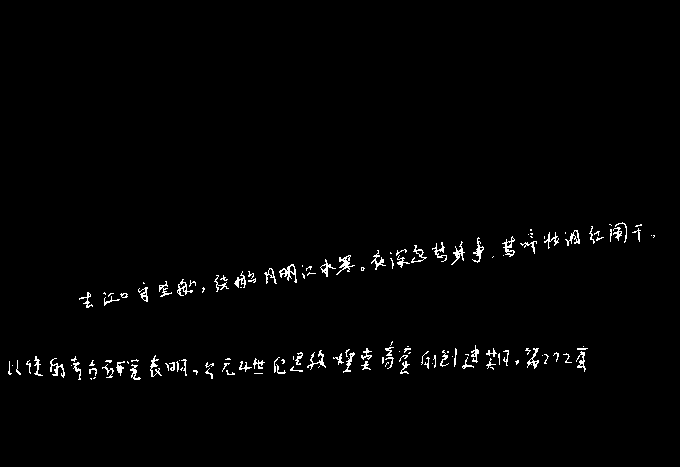 去江口守空船，绕船月明江水寒。夜深忽梦少年事，梦啼妆泪红阑干。
以往的考古研究表明，公元4世纪是敦煌莫高窟的创建期，第272窟